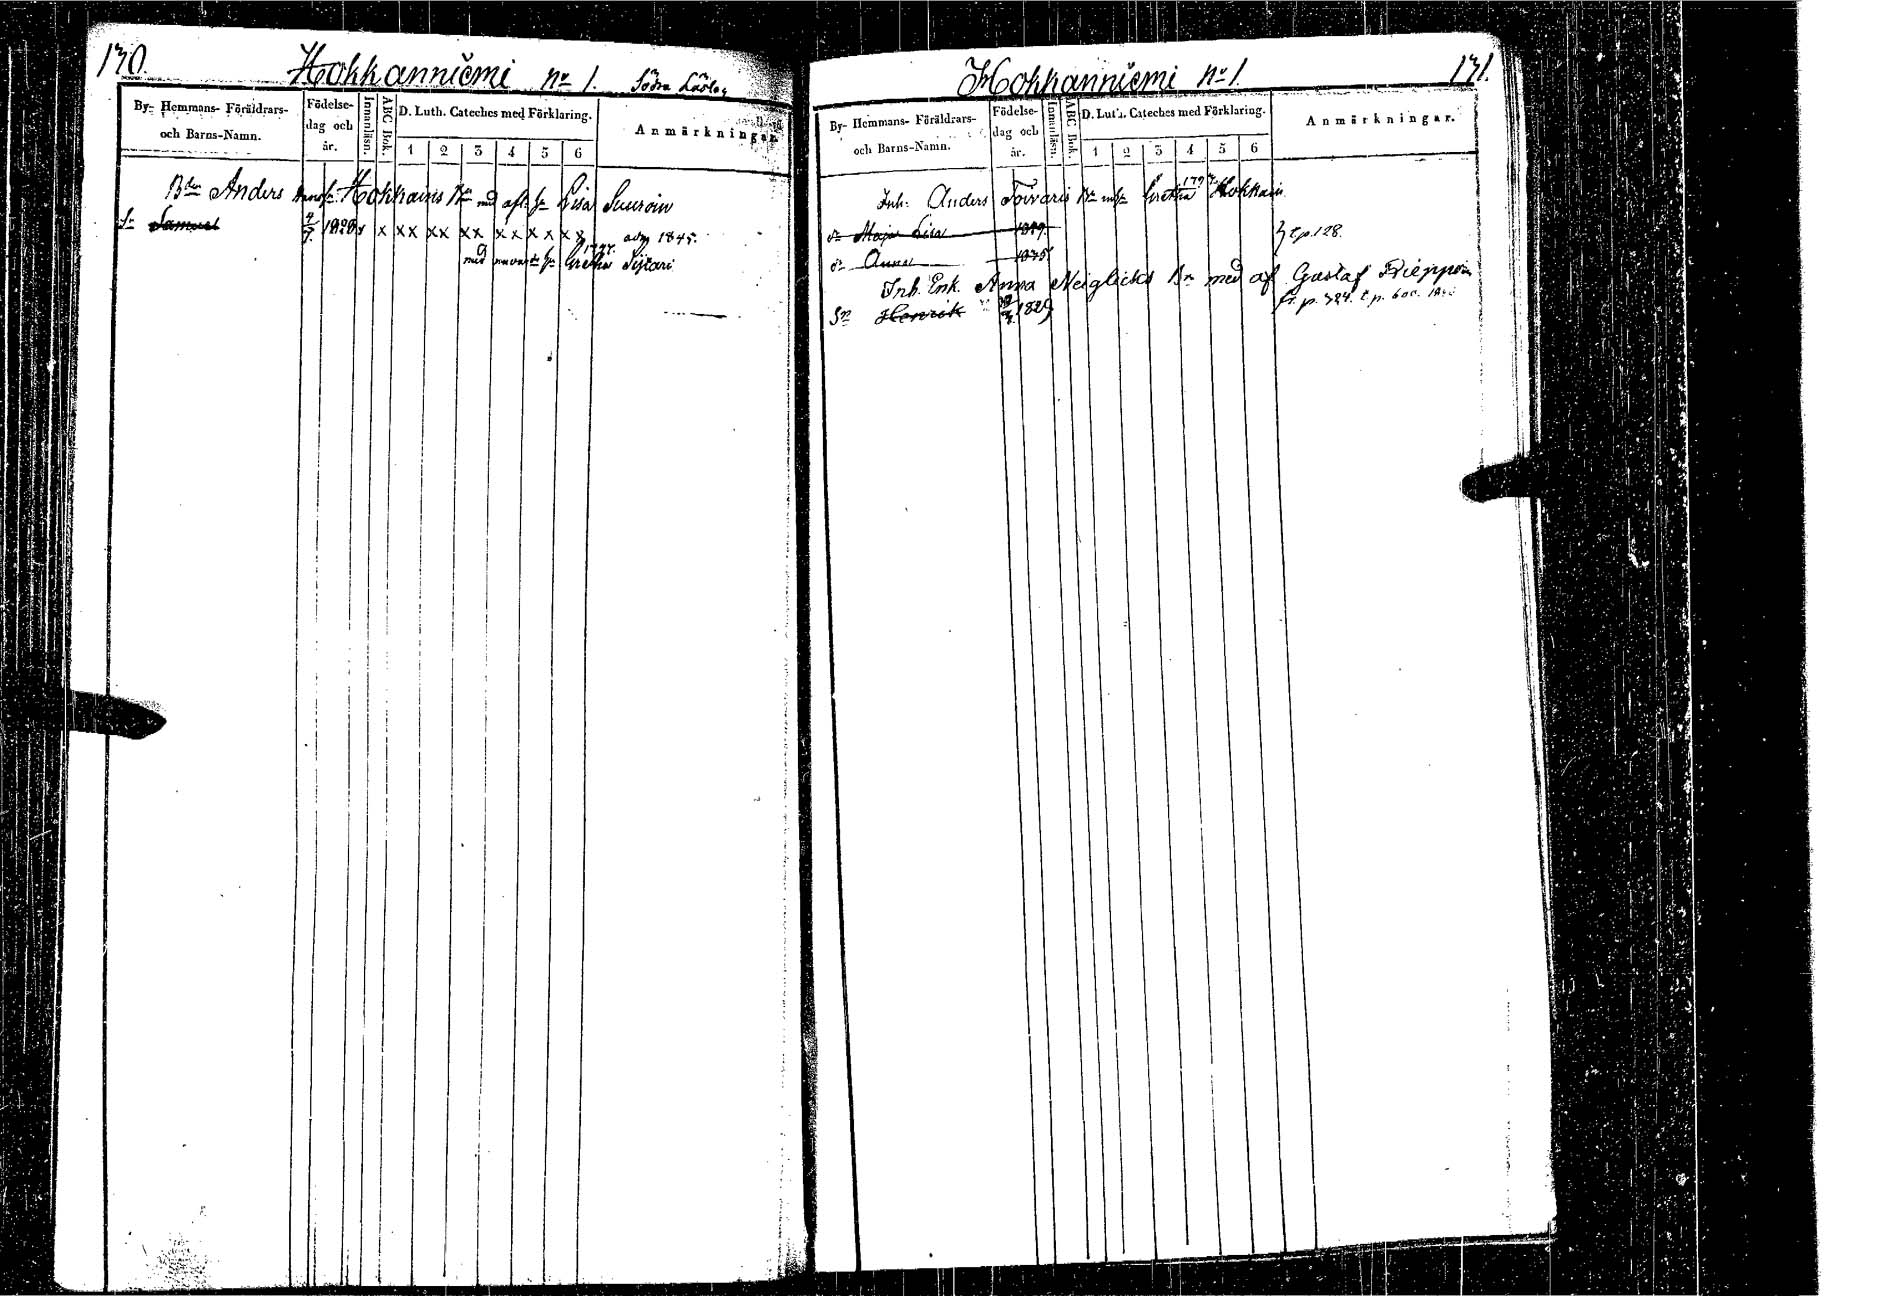 170.
Hokkanniemi No 1. Södra
By- Hemmans- Föräldrars-
och Barns-Namn.
Födelse-
dag och
år.
Innanläsn.
ABC Bok.
D. Luth. Cateches med Förklaring.
1 2 3 4 5 6
Anmärkningar.
Bden Anders Hokkains Bn med afl. h Lisa Suuroin
Sn Samuel 4/7 1829 x x xx xx xx xx xx xx adm 1845.
1797.
med h Gretha Sijtari
171.
Hokkanniemi No 1.
By- Hemmans- Föräldrars-
och Barns-Namn.
Födelse-
dag och
år.
Innanläsn.
ABC Bok.
D. Luth. Cateches med Förklaring.
1 2 3 4 5 6
Anmärkningar.
Inh. Anders Toivaris Bn m h Gretha Hokkain
dr Maja Lisa 1829. t.p. 128.
dr Anna 1835
Inh. Enk. Anna Neiglicks Bn med af. Gustaf Pieppoin
Sn Henrik 1829 fr. p. 324. t.p.